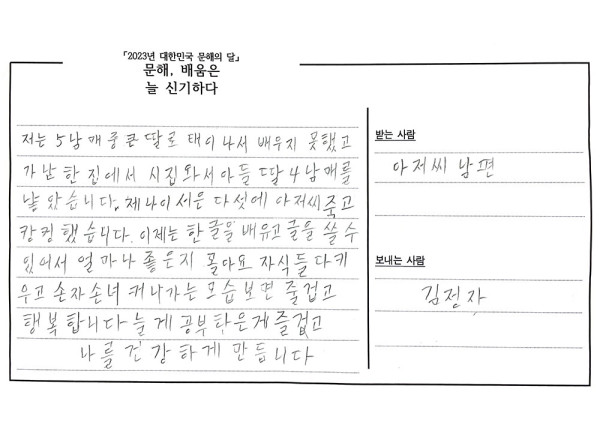 「2023년 대한민국 문해의 달」
문해, 배움은
늘 신기하다
저는 5남매 중 큰 딸로 태어나서 배우지 못했고
가난한 집에서 시집와서 아들 딸 4남매를
낳았습니다. 제나이 서른 다섯에 아저씨 죽고
캉컴했습니다. 이제는 한글을 배우고 글을 쓸 수
있어서 얼마나 좋은지 몰아요 자식들 다키
우고 손자손녀 커나가는 모습보면 줄겁고
행복합니다 늘게 공부하은게 즐겁고
나를 건강하게 만듭니다
받는 사람
아저씨 남편
보내는 사람
김정자